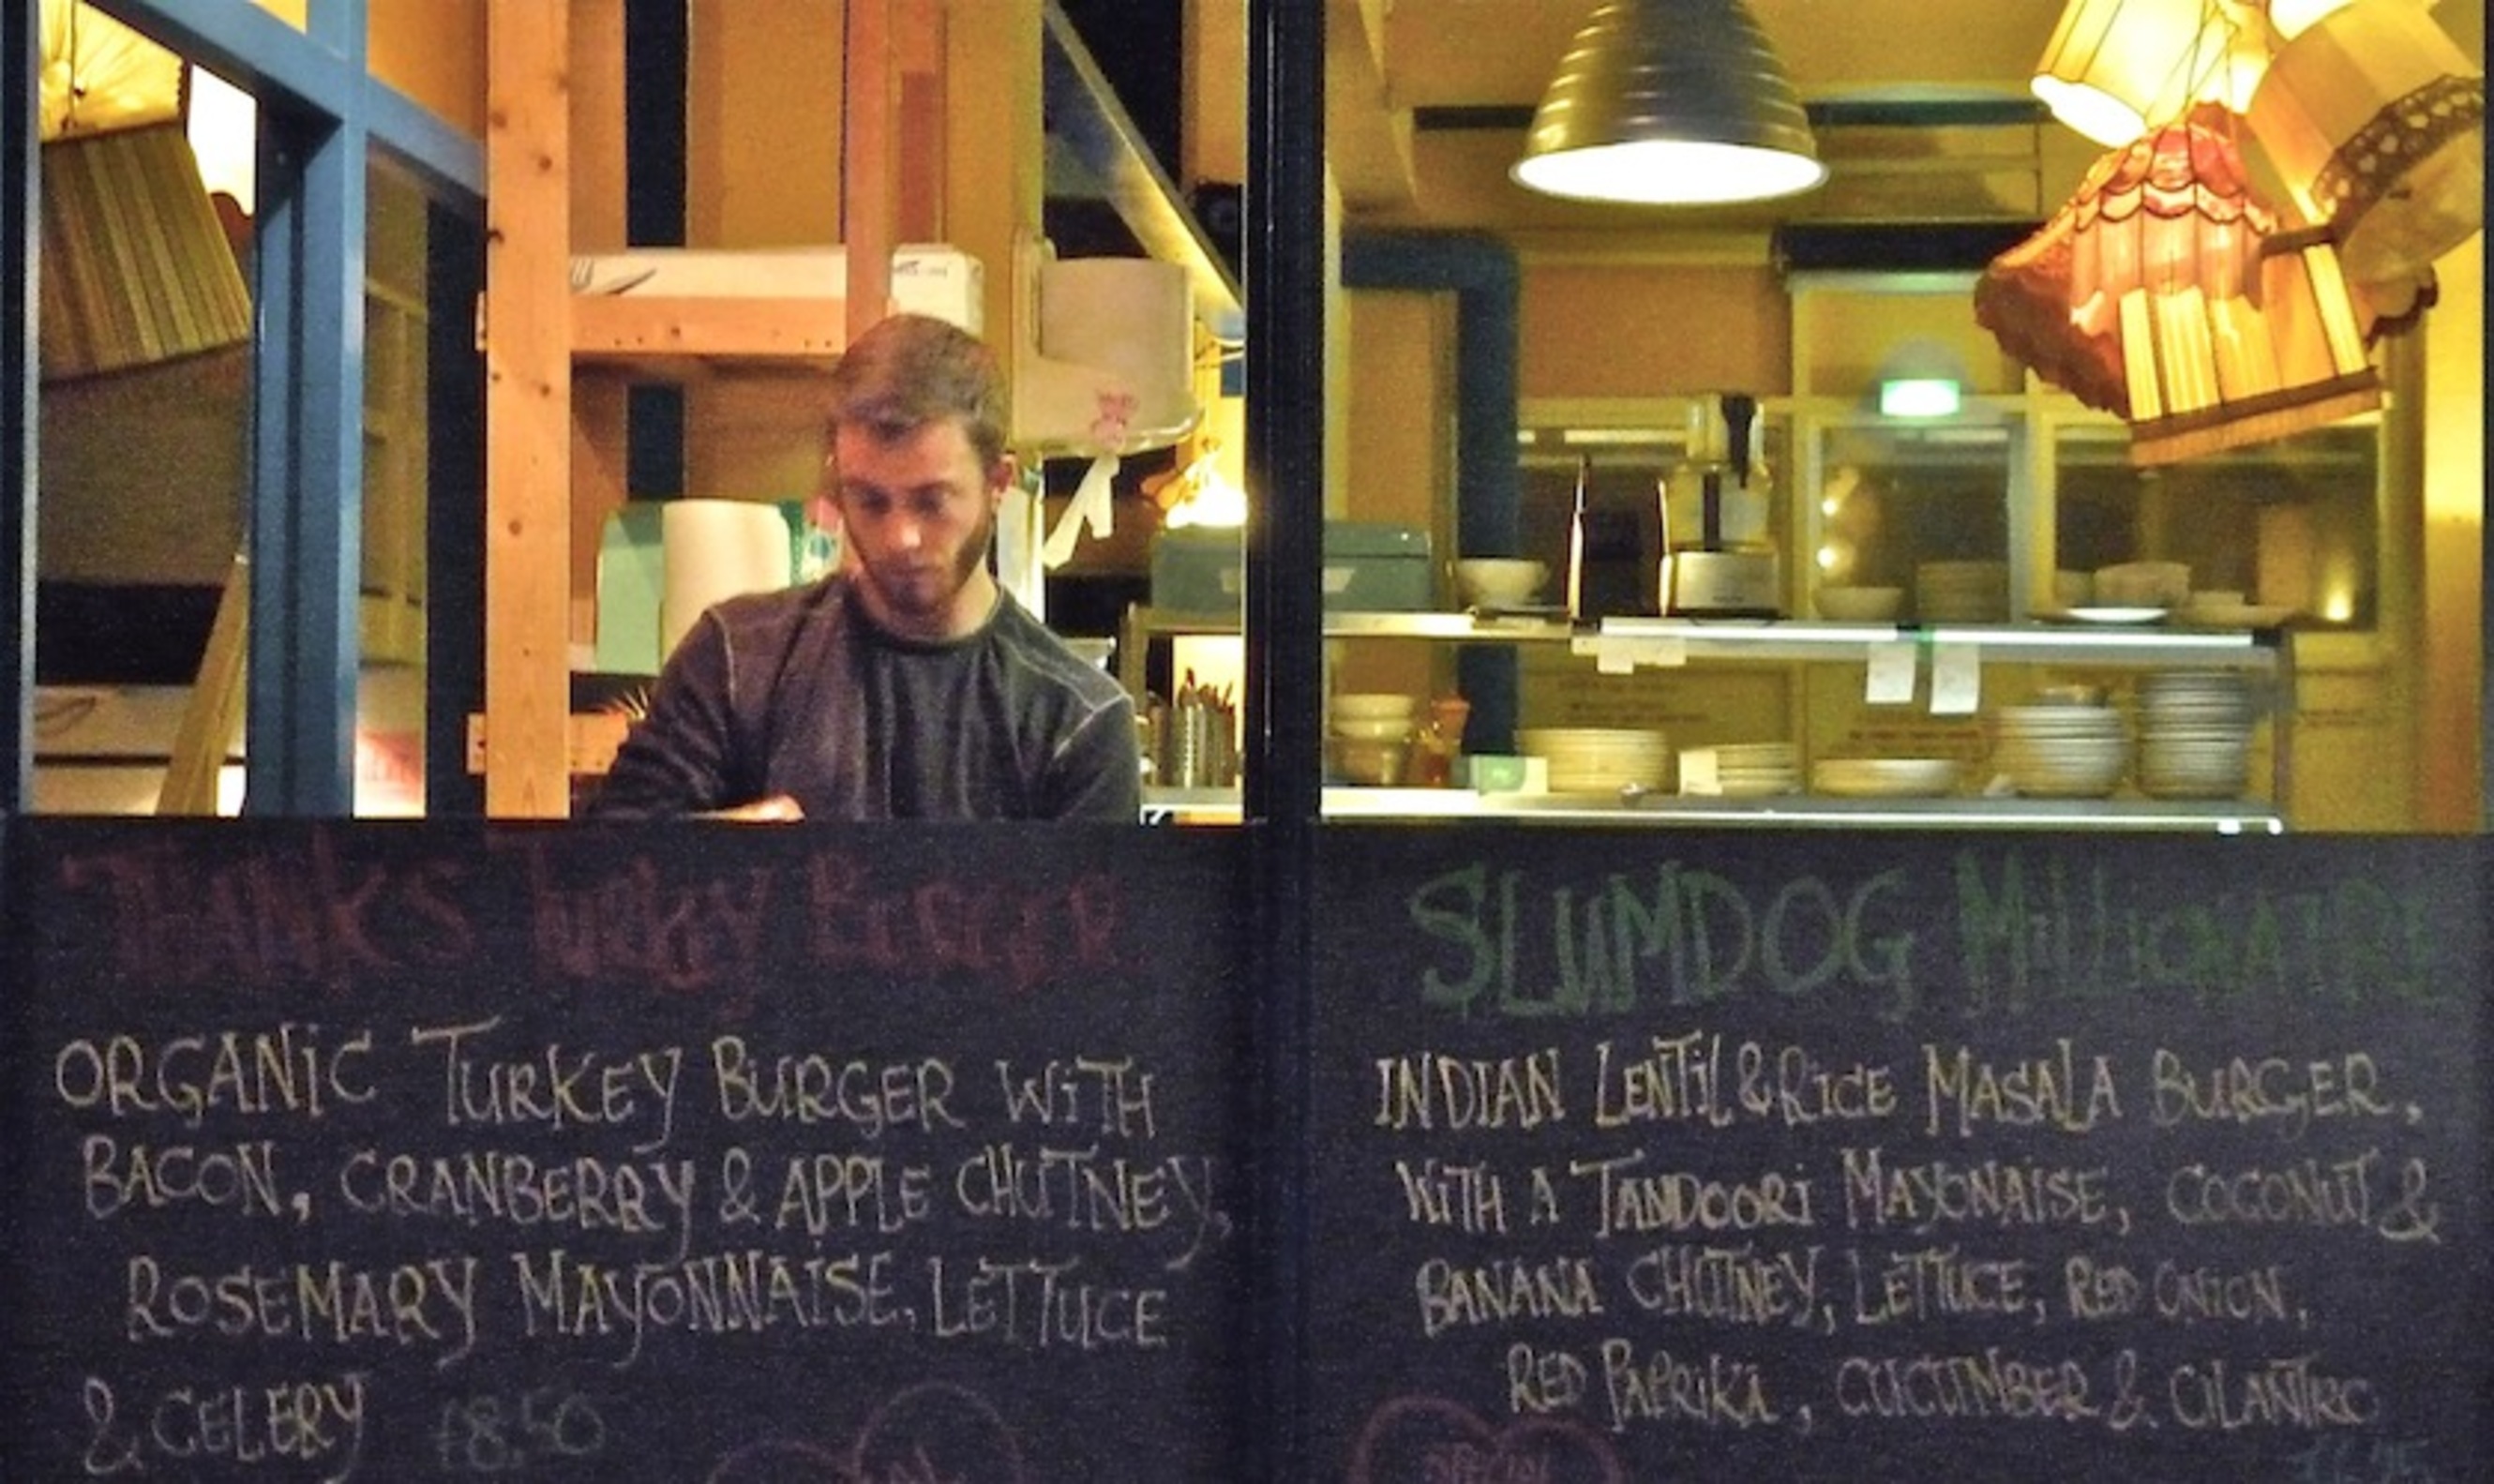 THANKS Turkey Burger
ORGANIC TURKEY BURGER WITH
BACON, CRANBERRY & APPLE CHUTNEY,
ROSEMARY MAYONNAISE, LETTUCE
& CELERY €8.50
SLUMDOG MILLIONAIRE
INDIAN LENTIL & RICE MASALA BURGER,
WITH A TANDOORI MAYONAISE, COCONUT &
BANANA CHUTNEY, LETTUCE, RED ONION,
RED PAPRIKA, CUCUMBER & CILANTRO
SPECIAL